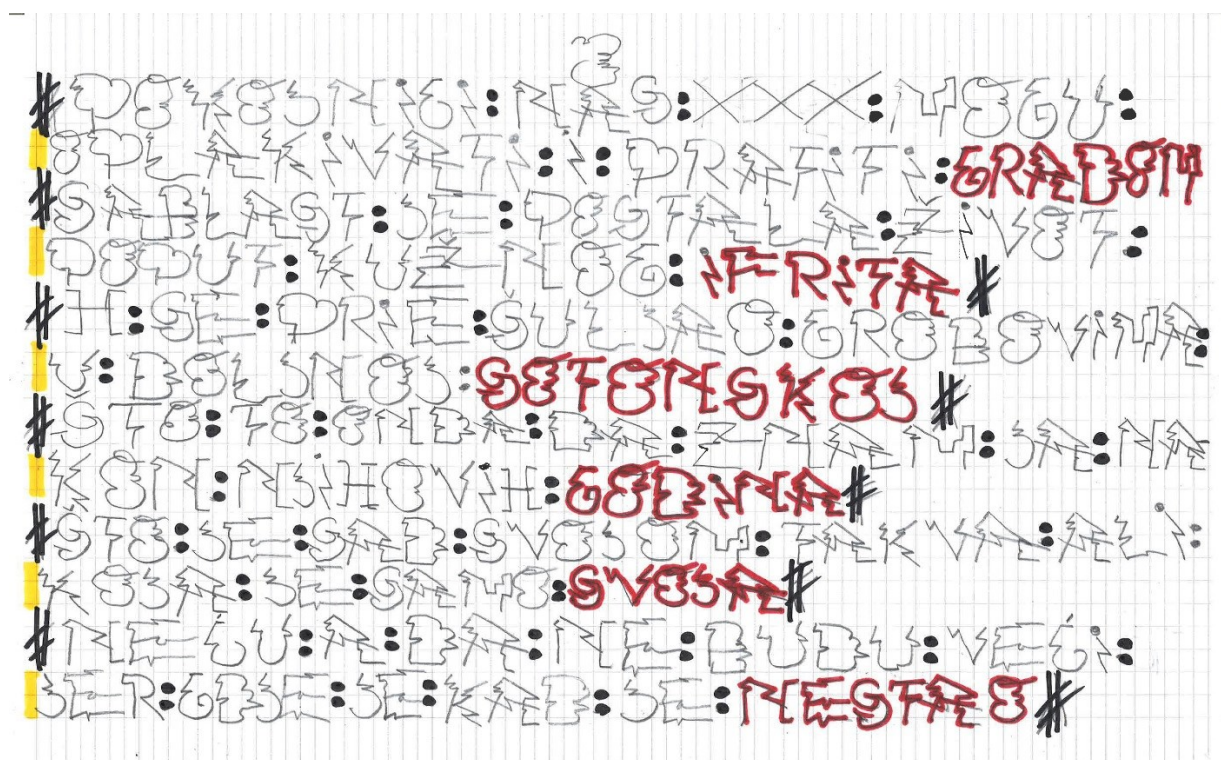 # POKOJNIČI: MOGU:
OPLAKIVATI: I: PRATITI: GRADOM
# SABLAST: JE: POSTALA: ŽIVOT:
POPUT: KUŽNOG: IFRITA #
# SE: ŠULJA S: GROBOVIMA:
U: DOLJNOJ: SOTONESKOJ #
# STO: TO: ONDA: DA: ZNAM: JA: NA
KON: NJIHOVIH: GODINA #
# STO: JE: SAD: SVOJOM: TAKVA: ALI:
KOJA: JE: SAMO: SVOJA #
# NEĆU: DA: NE: BUDU: VEĆI:
JER: GDJE: JE: KAD: JE: NESTAO #